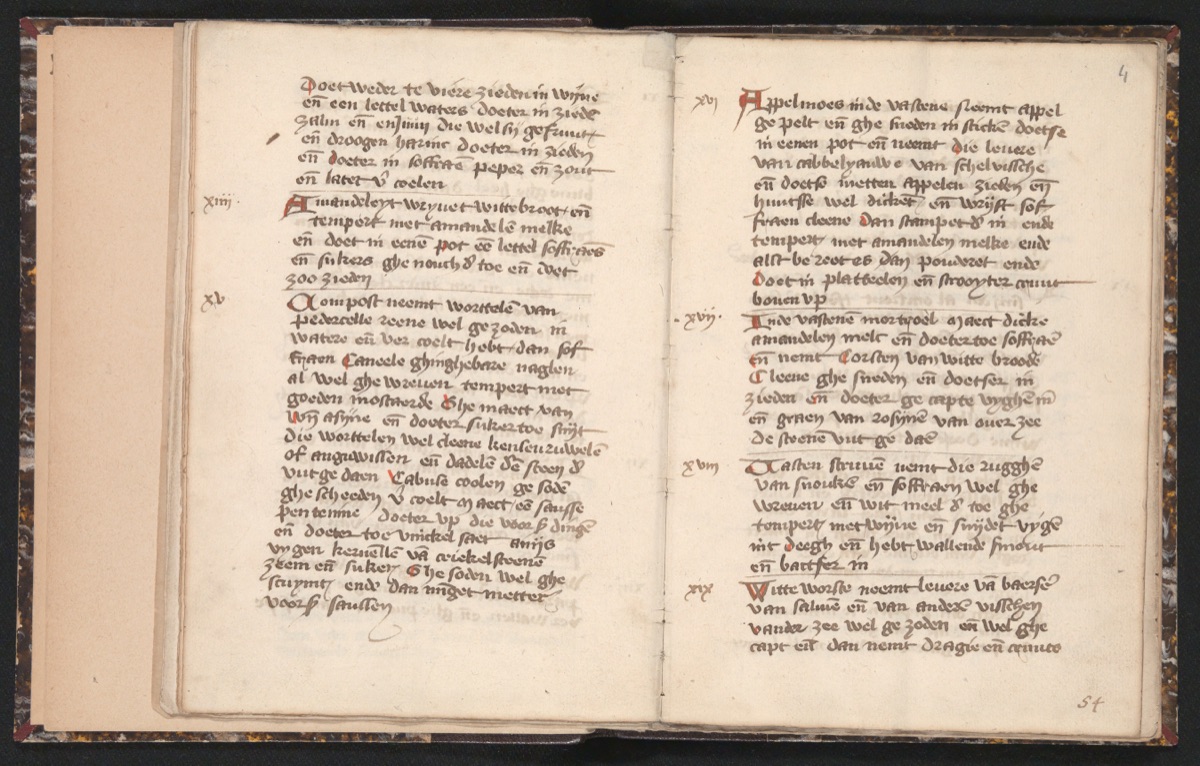 Doet weder te viere zieden in wijne
eñ een lettel waters doeter in ziedē
zalm eñ die wel sij gefruut
eñ droogen harinc doeter in zieden
eñ doeter in soffraen peper eñ zout
eñ latet v̄ coelen
xiiii. Amandeleyt wryvet wittebroot eñ
tempert met amandele melke
eñ doet in eenen pot eē lettel soffraens
eñ sukers ghenouch d toe eñ doet
zoo zieden
xv Compost neemt worttelē van
pedercelle reene wel gezoden in
watere eñ ver coelt hebt dan sof
fraen Caneele ghinghebare naglen
al wel ghewreven tempert met
goeden mostaerde Ghemaect van
wijn asyne eñ doeter suker toe snijt
die worttelen wel cleene kenseuruwelē
of anguwissen eñ dadelē dē steen d
uut ge daen Cabuse coolen ge sodē
ghescheeden v coelt Maect eē sausse
pertemme doeter up die voors dingē
eñ doeter toe vinckel saet anijs
vygen keruelle vā crieckelsteenen
zeem eñ suker Ghe soden wel ghe
scuymt ende dan minget metter
voors saussen
4
xvi Appelmoes in de vastene neemt appel
ge pelt eñ ghe sneden in sticken doetse
in eenen pot eñ neemt die levere
van cabbelyauwe van schelvissche
eñ doetse metten appelen zieden eñ
huutse wel dicken eñ wrijft sof
fraen cleene dan stampet d in ende
tempert met amandelen melke ende
alst be reet es dan pouderet ende
doet in platteelen eñ strooyter cruut
boven up
xvii. Inde vastenē mortroel Maect dicke
amandelen melc eñ doeter toe soffraē
eñ nemt Corsten van witte broode
Cleene ghe sneden eñ doetser in
zieden eñ doeter ge capte vyghē in
eñ graen van rosijnē van over zee
de steene uut ge daē
xviii Vasten struvē nemt die rugghē
van snoukē eñ soffraen wel ghe
wreven eñ wit meel d toe ghe
tempert met wijne eñ snydet vygē
int deegh eñ hebt wallende smout
eñ bactser in
xix Witte worste neemt levere vā baersē
van salmē eñ van anderē visschen
vander zee wel ge zoden eñ wel ghe
capt eñ dan nemt dragie eñ cruute
54